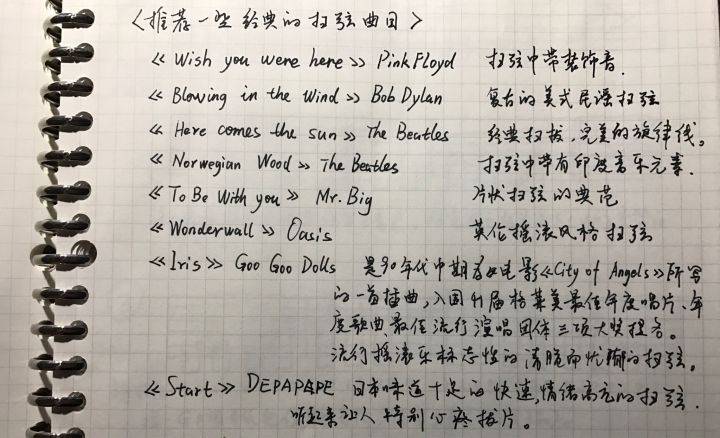 〈推荐一些经典的扫弦曲目〉
《Wish you were here》 Pink Floyd 扫弦中带装饰音.
《Blowing in the Wind》 Bob Dylan 复古的美式民谣扫弦
《Here comes the sun》 The Beatles 经典扫拨,完美的旋律线。
《Norwegian Wood》 The Beatles 扫弦中带有印度音乐元素.
《To Be With you》 Mr. Big 片状扫弦的典范
《Wonderwall》 Oasis 英伦摇滚风格扫弦
《Iris》 Goo Goo Dolls 是90年代中期为电影《City of Angels》所写
的一首插曲,入围41届格莱美最佳年度唱片、年
度歌曲、最佳流行演唱团体三项大奖提名。
流行摇滚乐标志性的清脆而忧郁的扫弦。
《Start》 DEPAPEPE 日本味道十足的快速,情绪高亢的扫弦.
听起来让人特别心疼拨片。